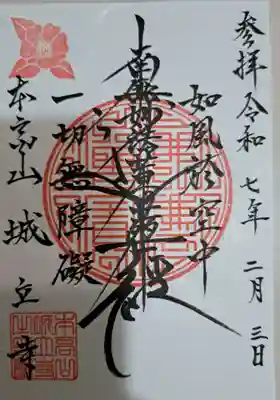 参拝 令和七年二月三日
如風於空中
南無妙法蓮華経
一切無障礙
本高山 城立寺